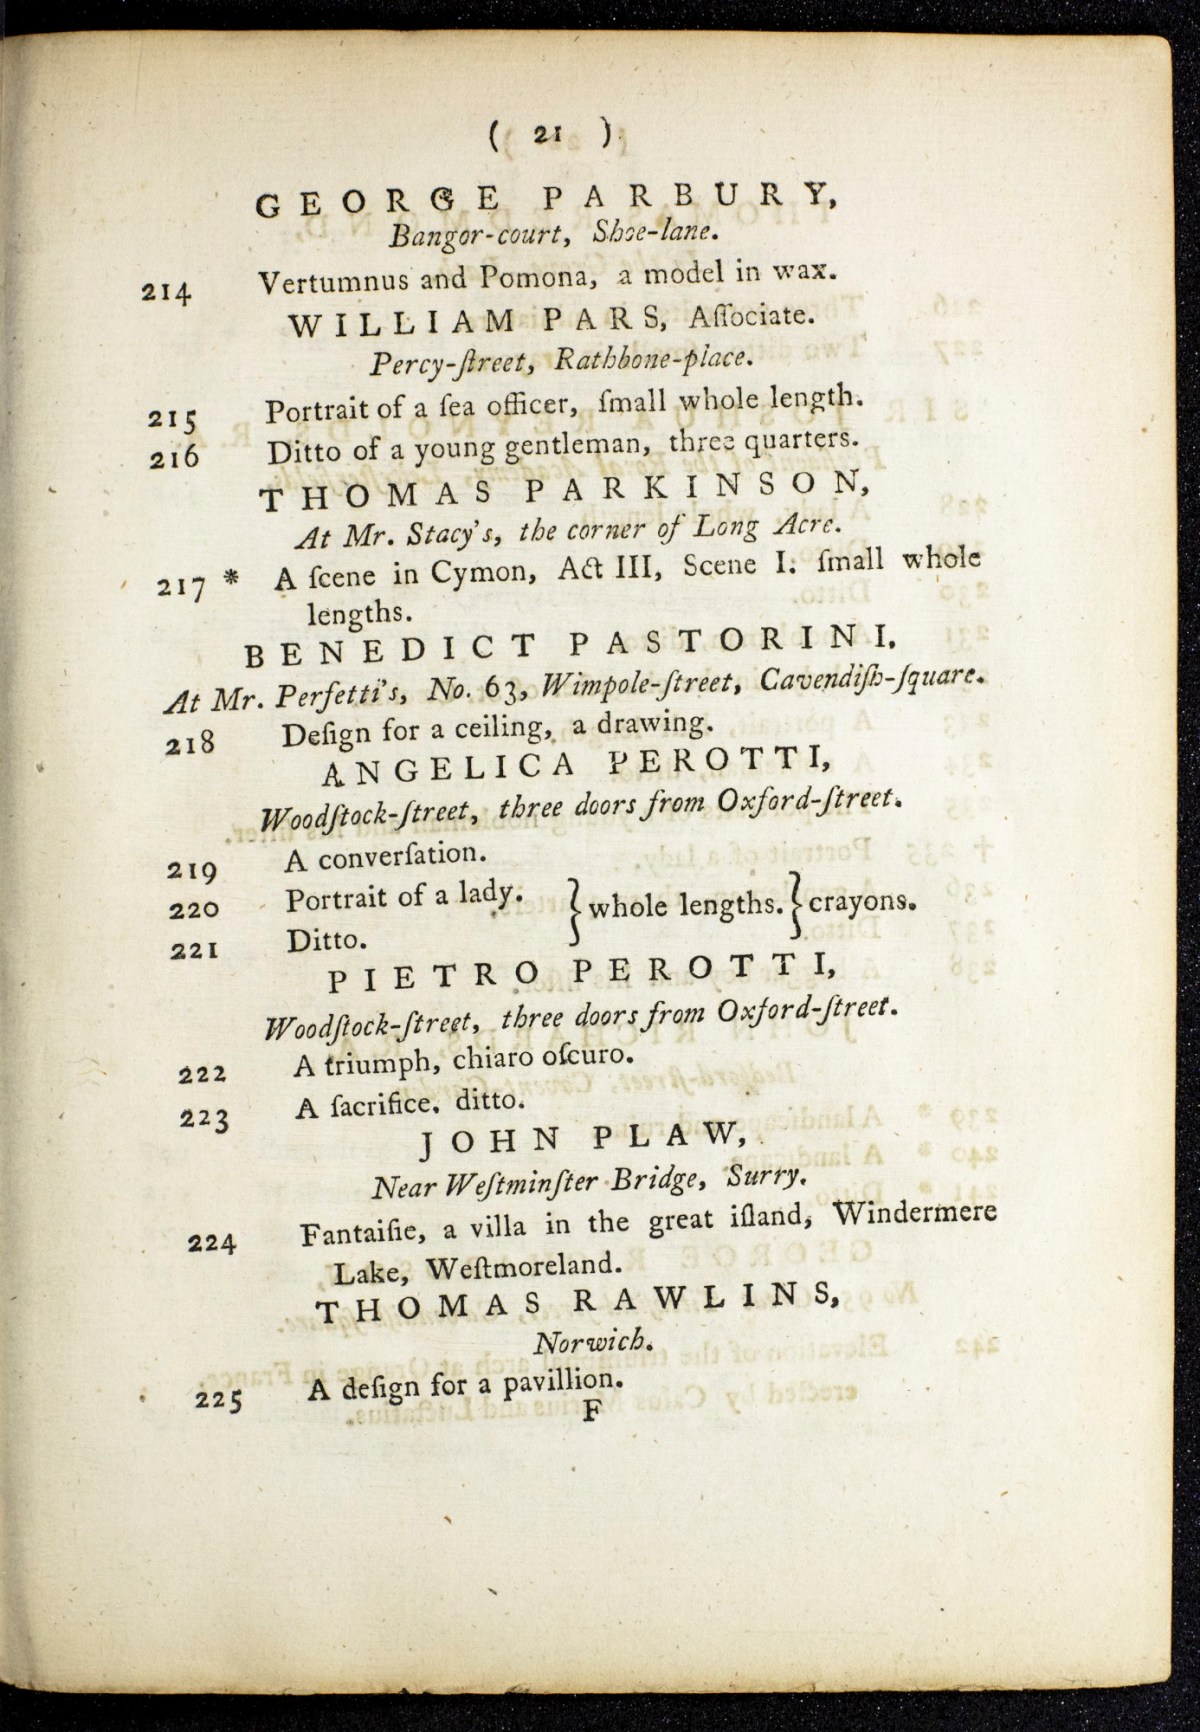 ( 21 )
GEORGE PARBURY,
Bangor-court, Shoe-lane.
214 Vertumnus and Pomona, a model in wax.
WILLIAM PARS, Aſſociate.
Percy-ſtreet, Rathbone-place.
215 Portrait of a ſea officer, ſmall whole length.
216 Ditto of a young gentleman, three quarters.
THOMAS PARKINSON,
At Mr. Stacy's, the corner of Long Acre.
217 * A ſcene in Cymon, Act III, Scene I. ſmall whole
lengths.
BENEDICT PASTORINI.
At Mr. Perſetti's, No. 63, Wimpole-ſtreet, Cavendiſh-ſquare.
218 Deſign for a ceiling, a drawing.
ANGELICA PEROTTI,
Woodſtock-ſtreet, three doors from Oxford-ſtreet.
219 A converſation.
220 Portrait of a lady. } whole lengths. } crayons.
221 Ditto.
PIETRO PEROTTI,
Woodſtock-ſtreet, three doors from Oxford-ſtreet.
222 A triumph, chiaro oſcuro.
223 A ſacrifice. ditto.
JOHN PLAW,
Near Weſtminſter Bridge, Surry.
224 Fantaiſie, a villa in the great iſland, Windermere
Lake, Weſtmoreland.
THOMAS RAWLINS,
Norwich.
225 A deſign for a pavillion.
F